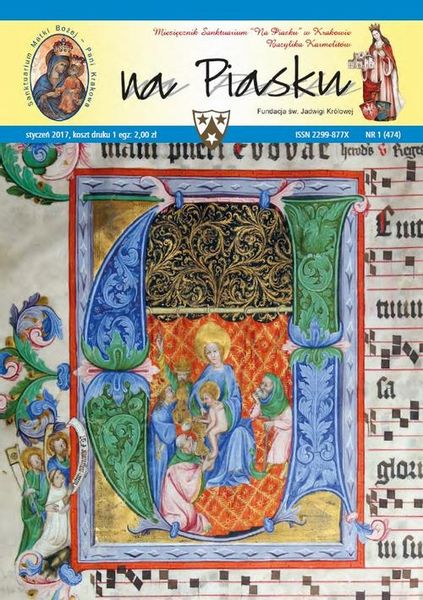 Sanktuarium Matki Bożej - Pani Krakowa
Miesięcznik Sanktuarium "Na Piasku" w Krakowie
Bazylika Karmelitów
na Piasku
Fundacja św. Jadwigi Królowej
styczeń 2017, koszt druku 1 egz: 2,00 zł
ISSN 2299-877X
NR 1 (474)
pueri evovae
herods
Reges
sa
glori
in